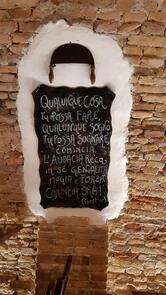 QUALUNQUE COSA
TU POSSA FARE,
QUALUNQUE SOGNO
TU POSSA SOGNARE,
COMINCIA.
L'AUDACIA RECA
IN SÈ GENIALITÀ
MAGIA E FORZA.
COMINCIA ORA!
(Goethe)